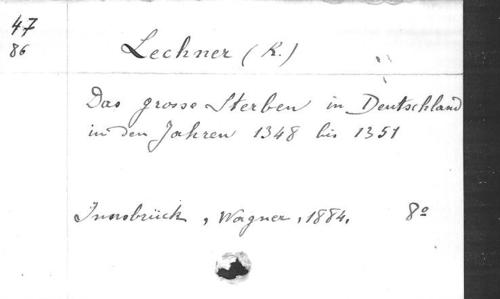 47
86
Lechner (K.)
Das grosse Sterben in Deutschland
in den Jahren 1348 bis 1351
Innsbrück, Wagner, 1884. 8º